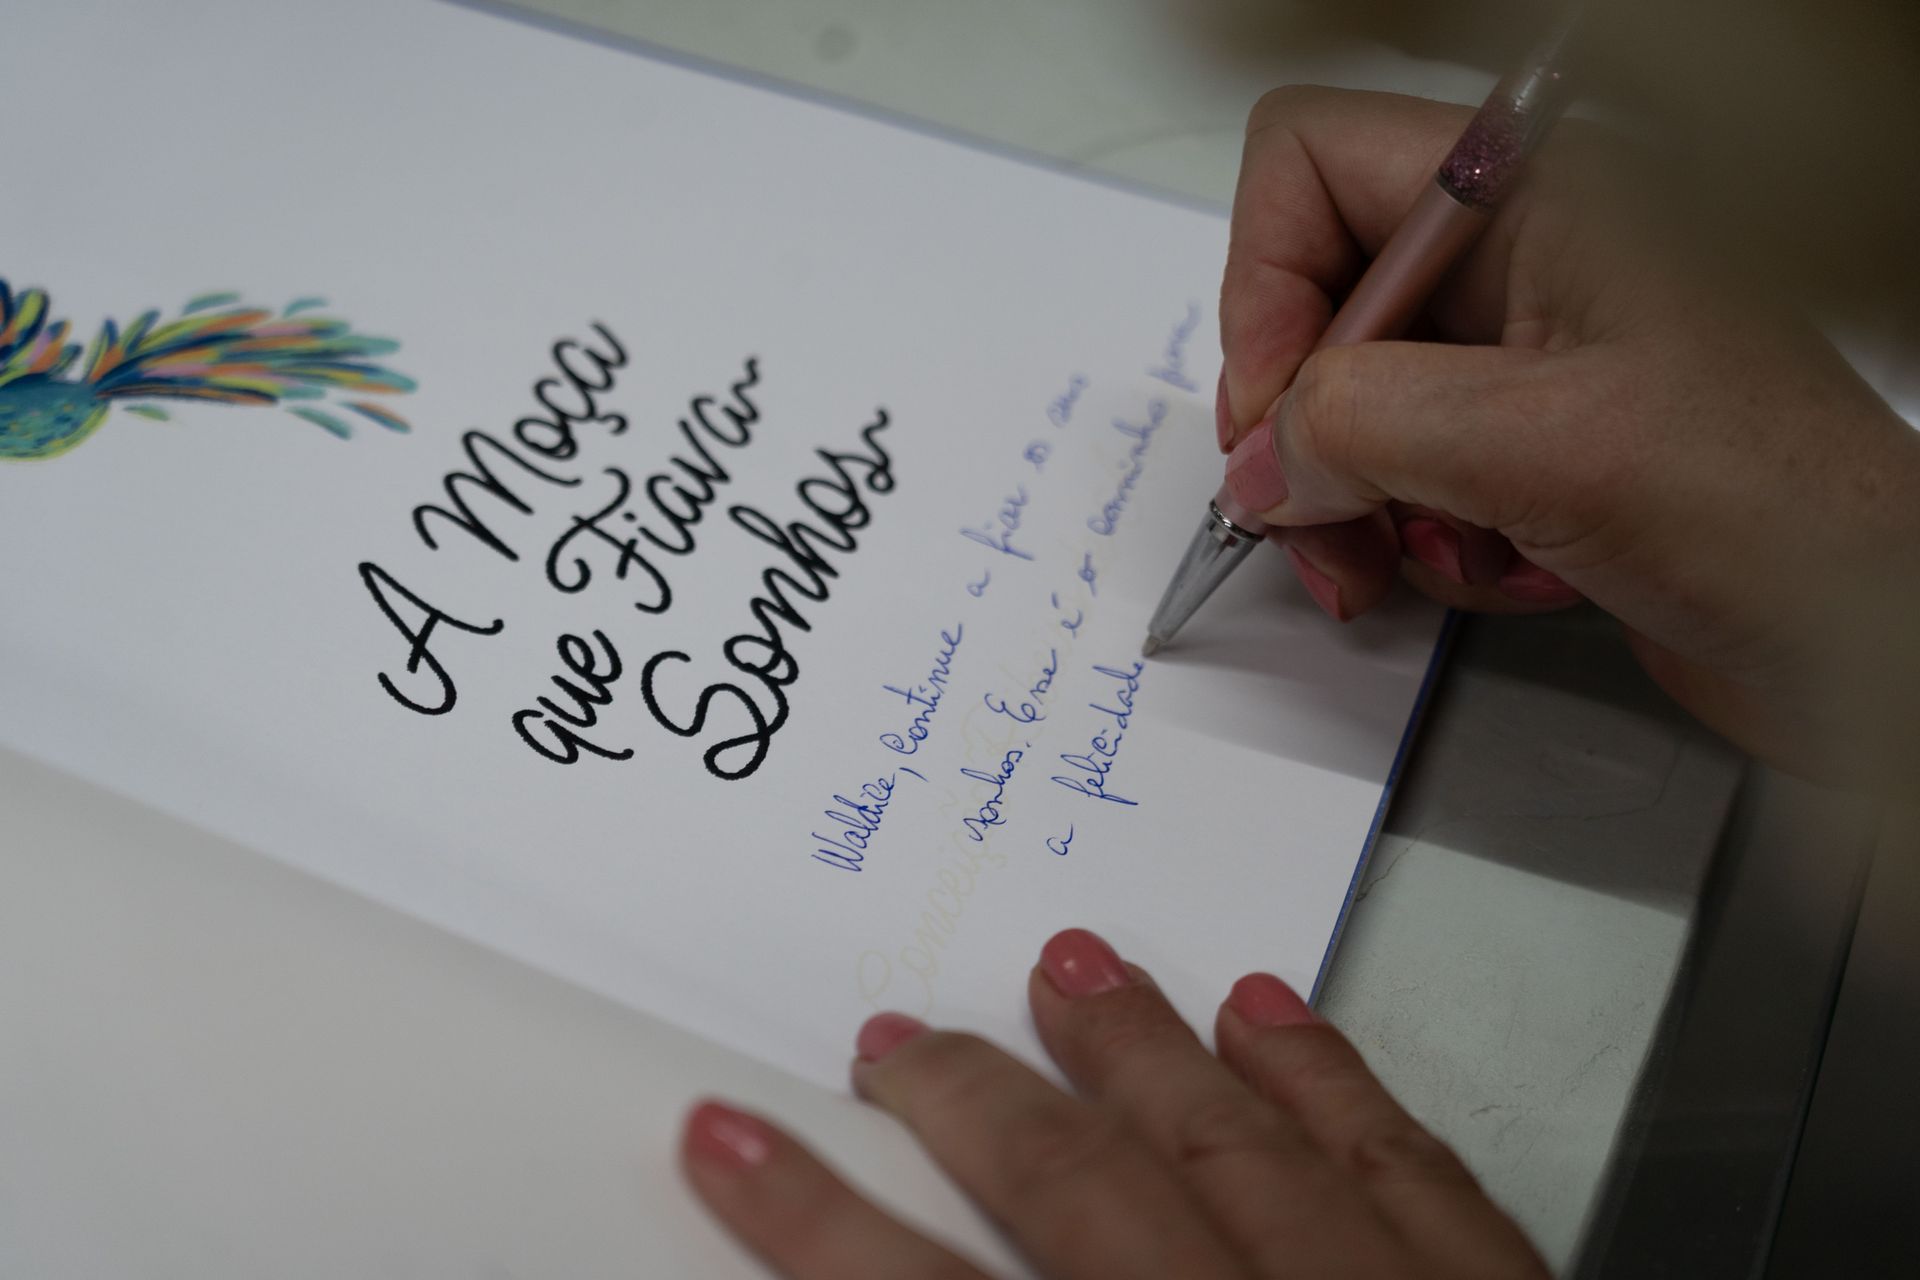 A Moça
que Fiava
Sonhos
Waldice, Continue a fiar os seus
sonhos. Esse é o caminho para
a felicidade
Conceição